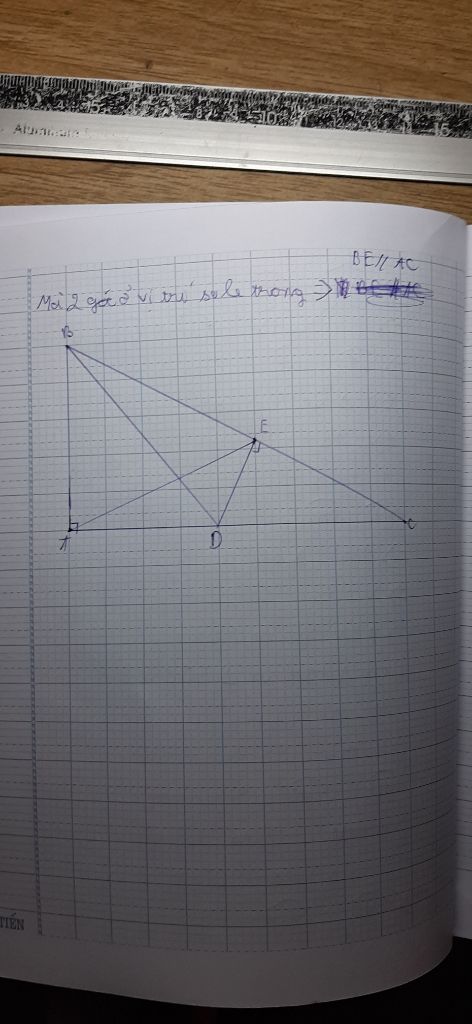 Aluminum
BE // AC
Mà 2 góc ở vị trí sole trong =>
B
E
A
D
C
TIẾN